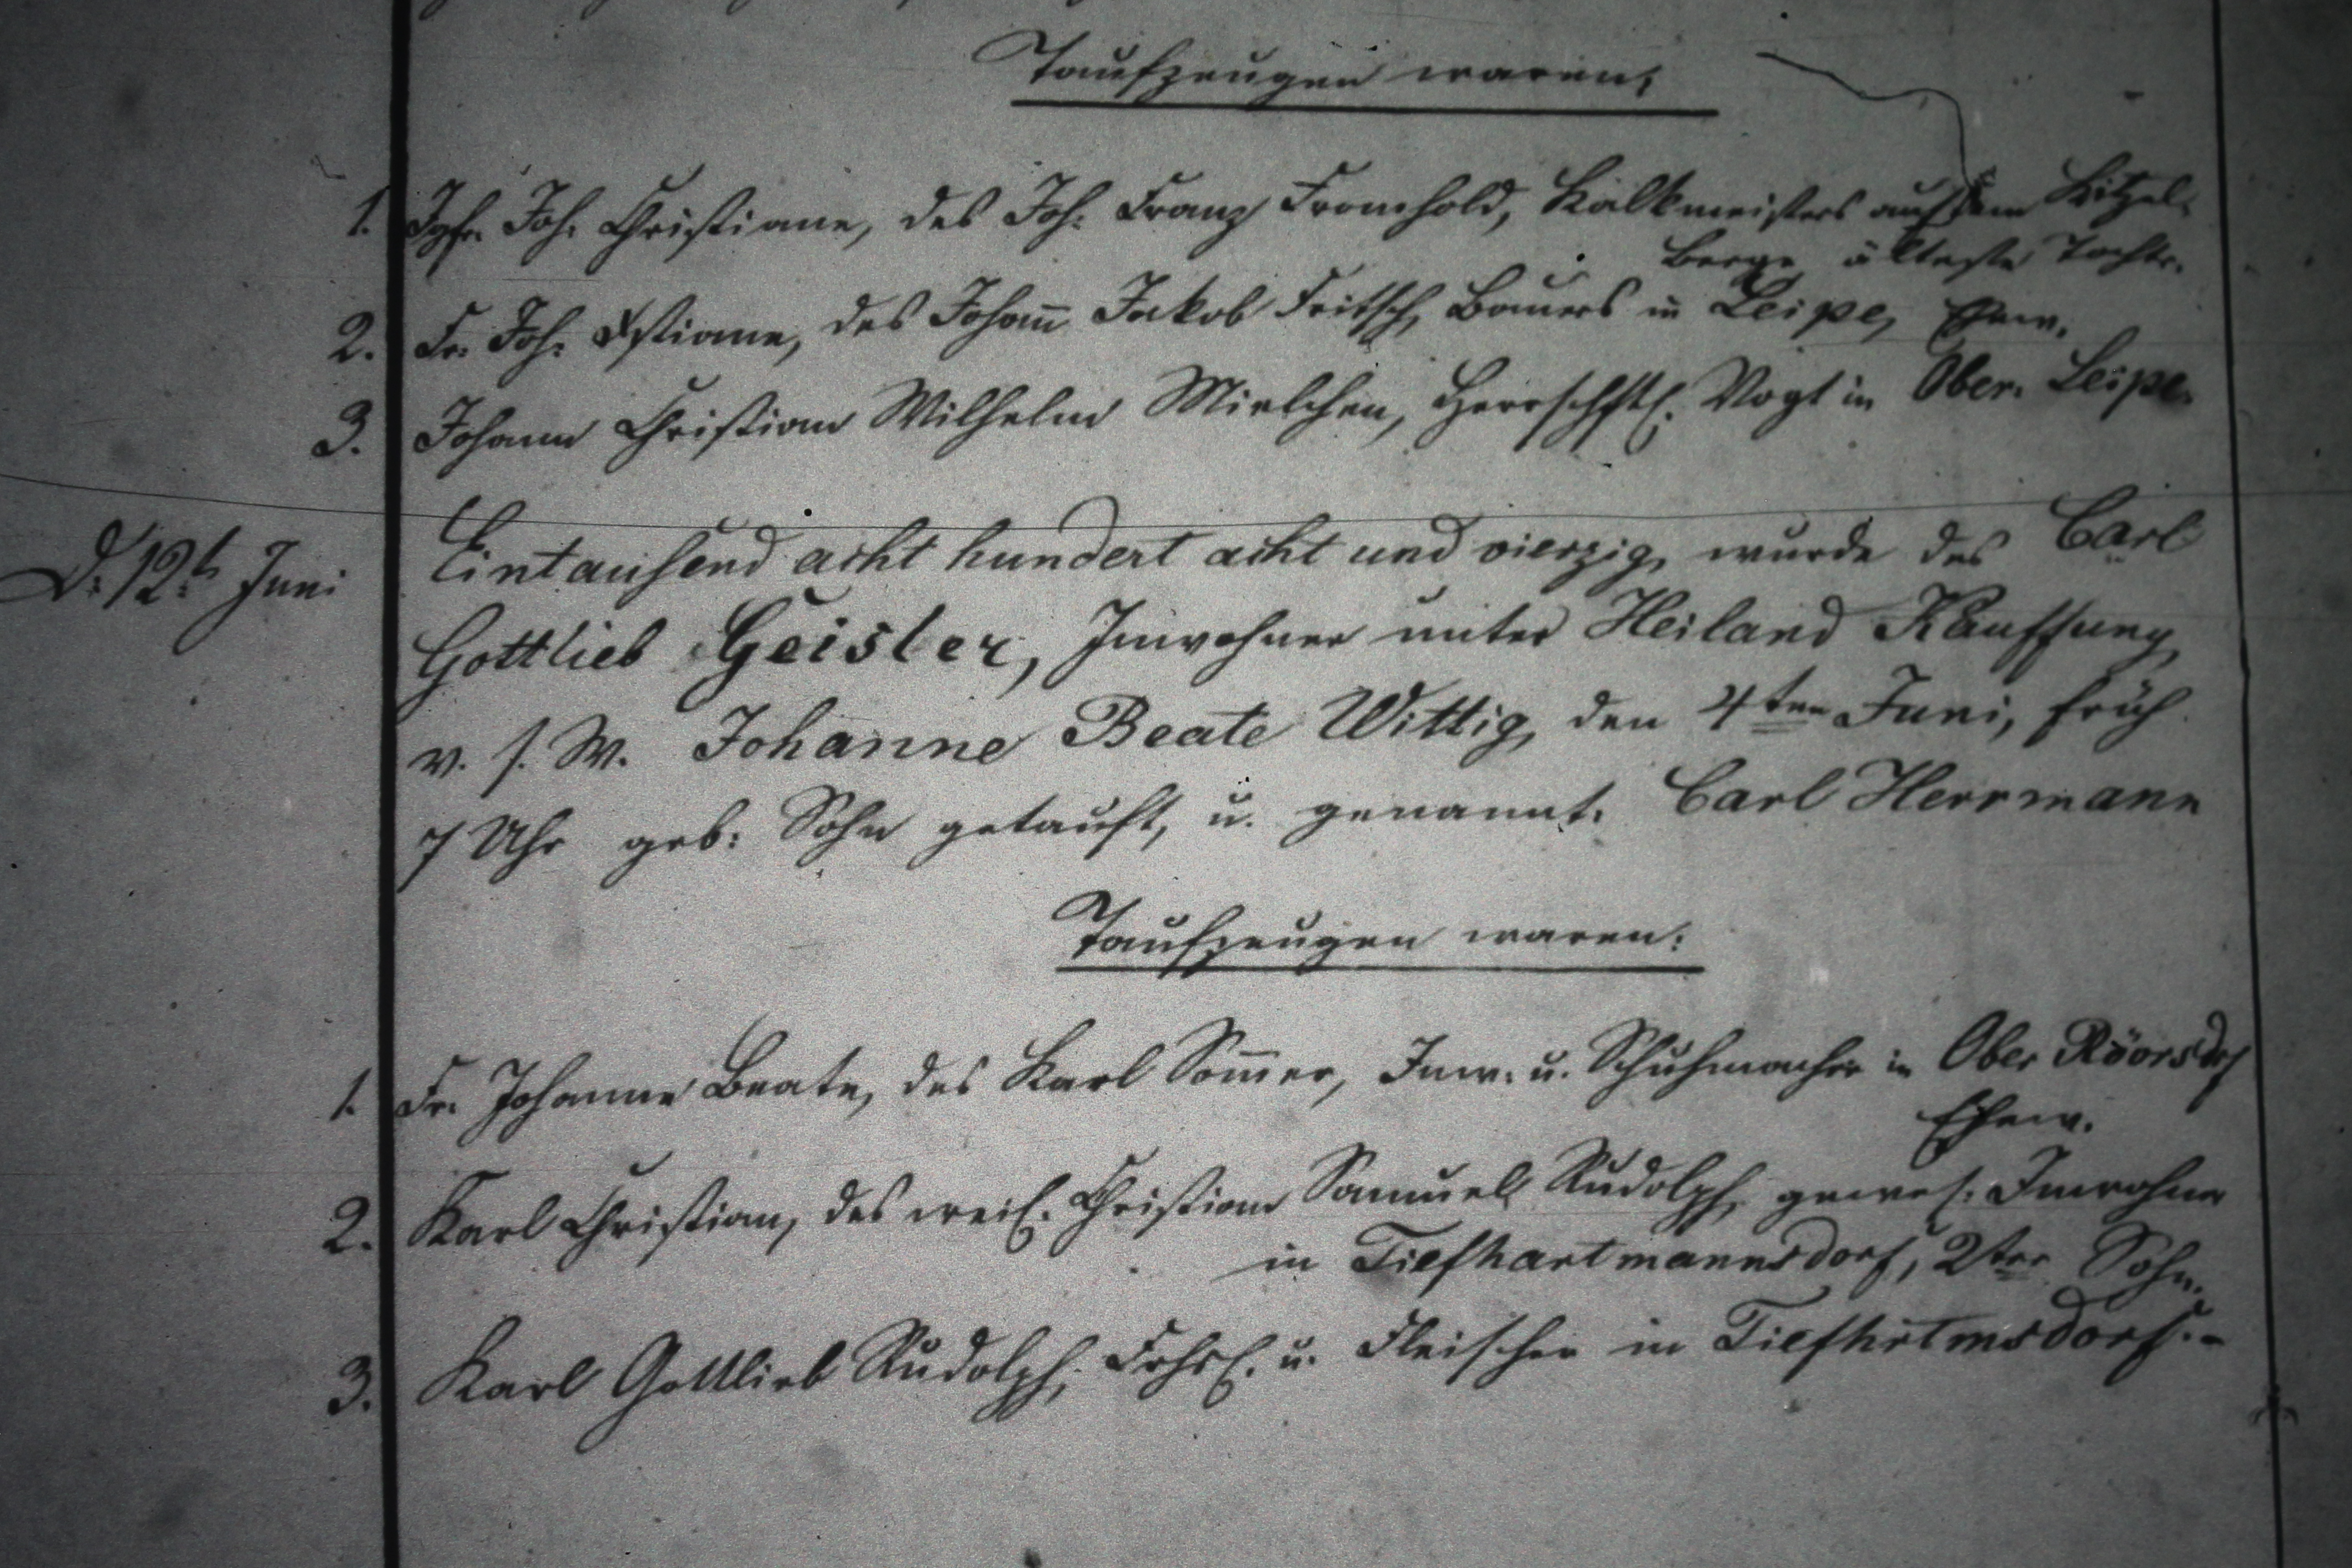 Taufzeugen waren;
1. Jgfr. Joh. Christiane, des Joh: Franz Fromhold, Kalkmeisters auf dem Kitzel-
berge älteste Tochtr.
2. Fr. Joh: Xstiane, des Johañ Jakob Fritsch, Bauers in Leipe, Ehew.
3. Johann Christian Wilhelm Mielchen, Herrschftl. Vogt in Ober-Leipe.
D. 12.t Juni
Eintausend acht hundert acht und vierzig, wurde des Carl
Gottlieb Geisler, Inwohner unter Heiland Kauffung,
v. s. W. Johanne Beate Wittig, den 4ten Juni, früh
7 Uhr geb: Sohn getauft, u. genannt: Carl Herrmann
Taufzeugen waren:
1. Fr. Johanne Beate, des Karl Som̃er, Inw. u. Schuhmacher in Ober Röorsdrf
Ehew.
2. Karl Christian, des weil. Christian Samuel Rudolph, gewes. Inwohner
in Tiefhartmannsdorf, 2ter Sohn.
3. Karl Gottlieb Rudolph, Frhsl. u. Fleischer in Tiefhrtmsdorf.-